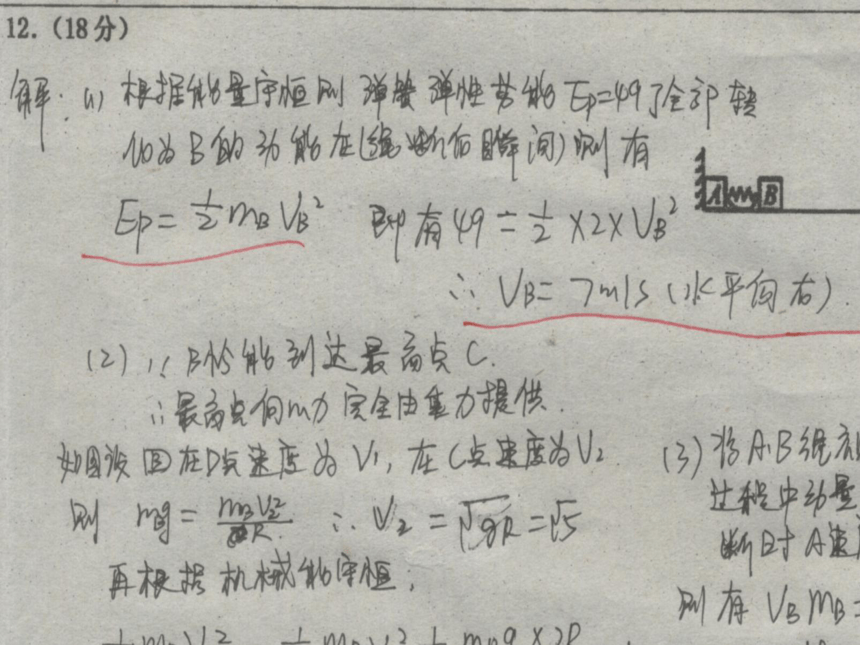 12.(18分)
解:(1) 根据能量守恒则 弹簧弹性势能Ep=49J全部转
化为B的动能在(绳断后瞬间)则有
Ep=½mBVB² 即有49=½×2×VB²
A B
∴ VB=7m/s (水平向右).
(2) ∵ B恰能到达最高点C.
∴最高点向心力完全由重力提供.
如图设 在D点速度为V₁,在C点速度为V₂
则 mg = mBV₂²/R ∴ V₂=√gR=√5
再根据机械能守恒,
(3) 将A.B绳
过程中动量
断时A速
则有 VBmB=